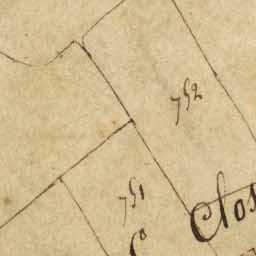 752
751
Clos